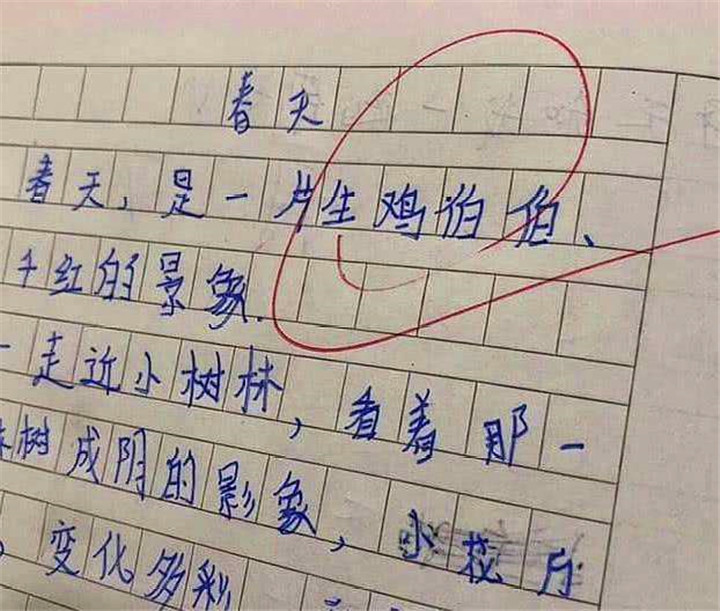 春天
春天，是一片生鸡泊伯、
千红的景象.
一走近小树林，看着那一
树成阴的影象，小花
变化多彩